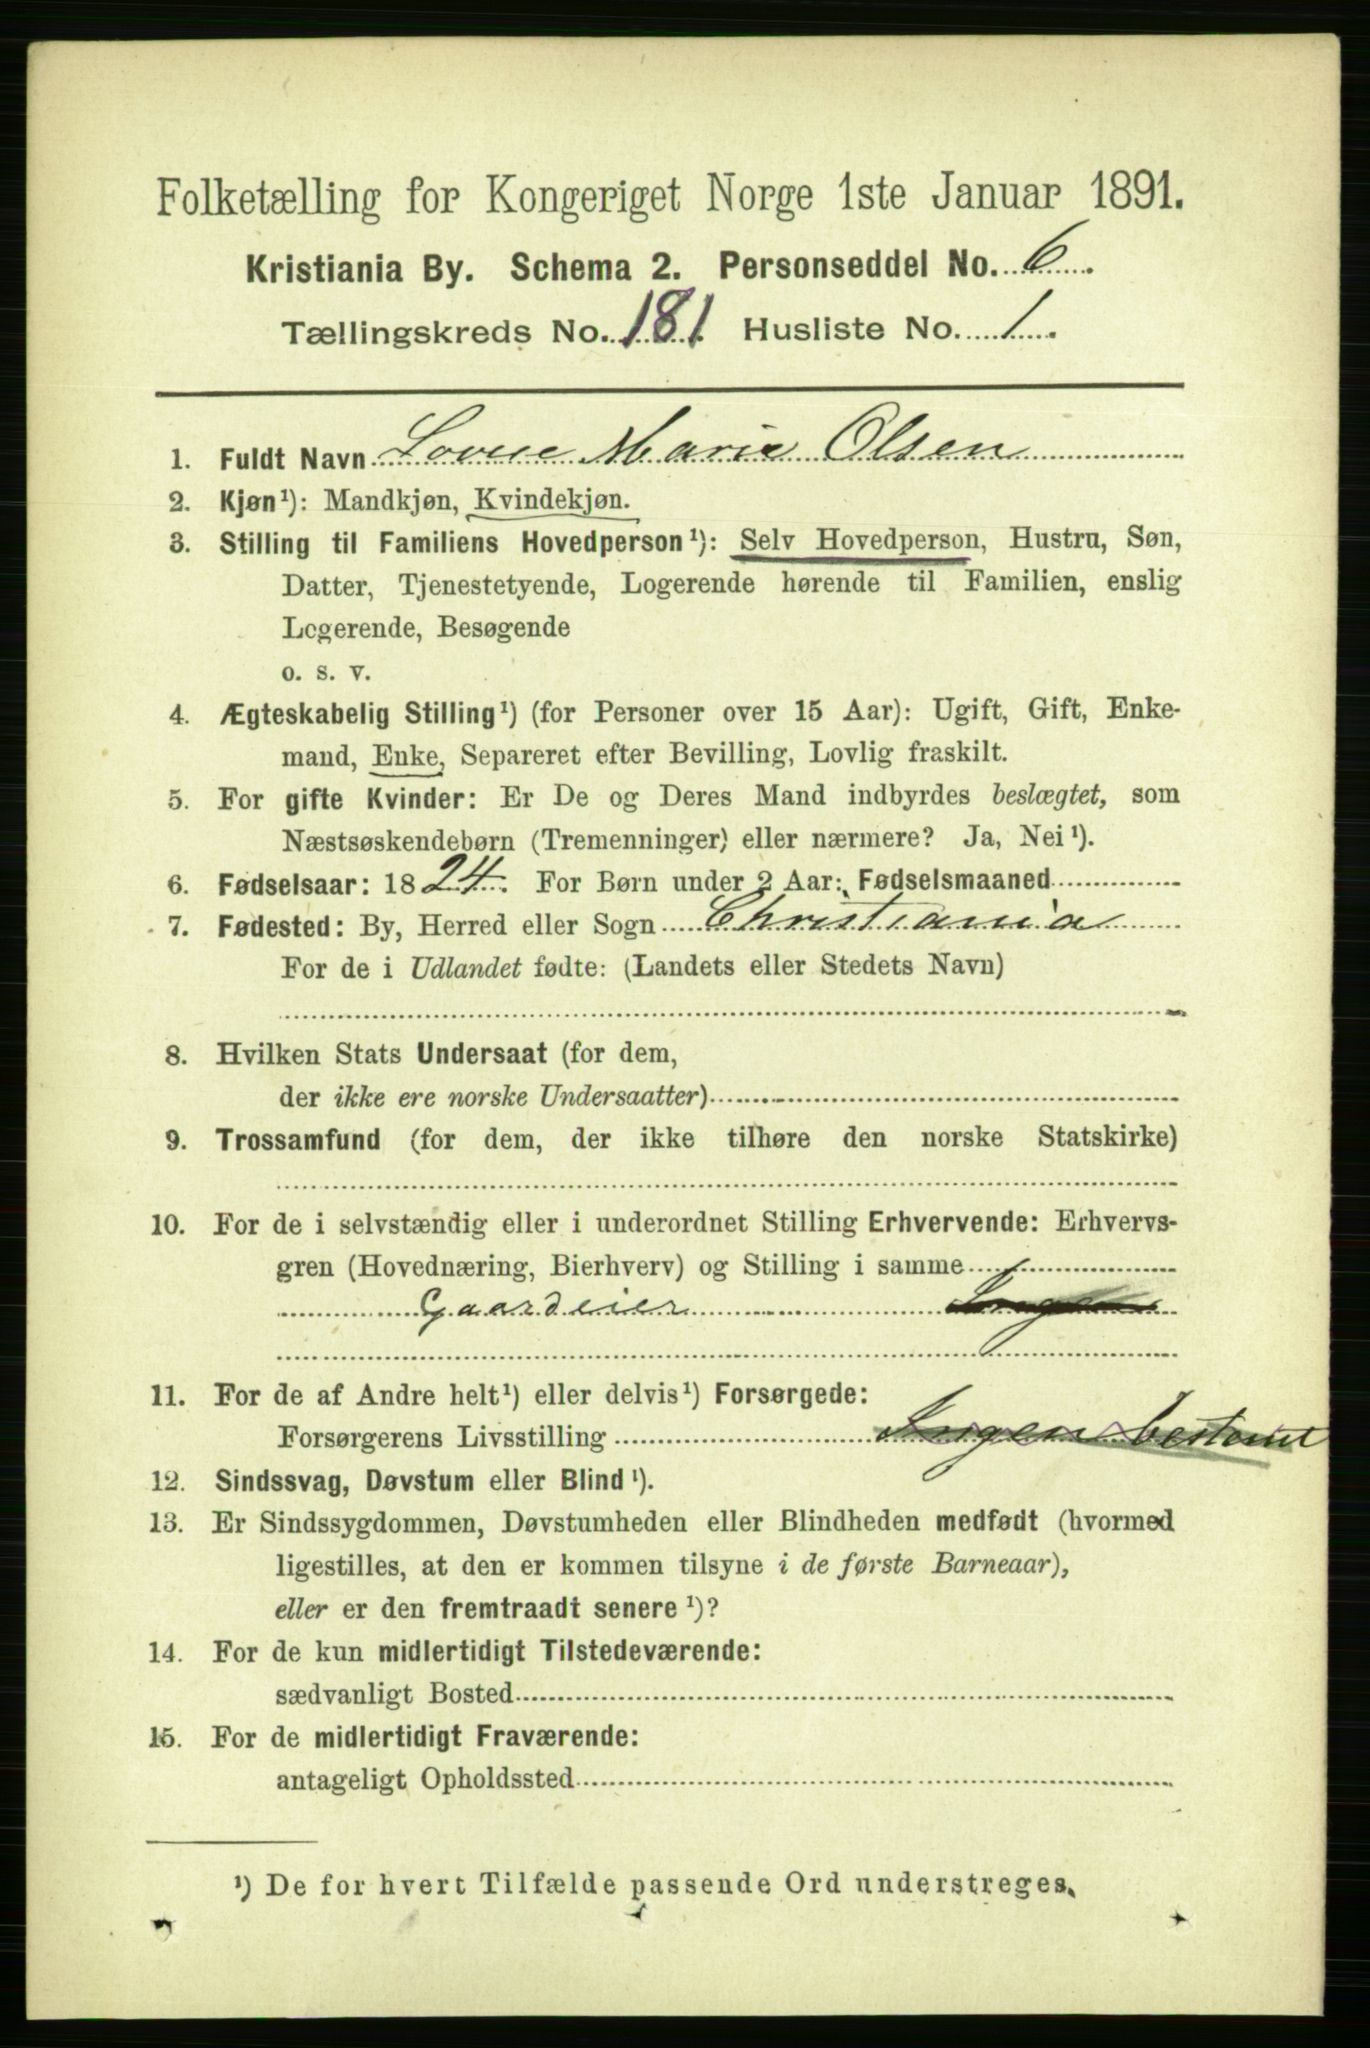 Folketælling for Kongeriget Norge 1ste Januar 1891.
Kristiania By. Schema 2. Personseddel No. 6.
Tællingskreds No. 181. Husliste No. 1.
1. Fuldt Navn Lovise Marie Olsen
2. Kjøn¹): Mandkjøn, Kvindekjøn.
3. Stilling til Familiens Hovedperson¹): Selv Hovedperson, Hustru, Søn,
Datter, Tjenestetyende, Logerende hørende til Familien, enslig
Logerende, Besøgende
o. s. v.
4. Ægteskabelig Stilling¹) (for Personer over 15 Aar): Ugift, Gift, Enke-
mand, Enke, Separeret efter Bevilling, Lovlig fraskilt.
5. For gifte Kvinder: Er De og Deres Mand indbyrdes beslægtet, som
Næstsøskendebørn (Tremenninger) eller nærmere? Ja, Nei¹).
6. Fødselsaar: 1824. For Børn under 2 Aar: Fødselsmaaned
7. Fødested: By, Herred eller Sogn Christiania
For de i Udlandet fødte: (Landets eller Stedets Navn)
8. Hvilken Stats Undersaat (for dem,
der ikke ere norske Undersaatter)
9. Trossamfund (for dem, der ikke tilhøre den norske Statskirke)
10. For de i selvstændig eller i underordnet Stilling Erhvervende: Erhvervs-
gren (Hovednæring, Bierhverv) og Stilling i samme
Gaardeier Ingen
11. For de af Andre helt¹) eller delvis¹) Forsørgede:
Forsørgerens Livsstilling Ingen bestemt
12. Sindssvag, Døvstum eller Blind¹).
13. Er Sindssygdommen, Døvstumheden eller Blindheden medfødt (hvormed
ligestilles, at den er kommen tilsyne i de første Barneaar),
eller er den fremtraadt senere¹)?
14. For de kun midlertidigt Tilstedeværende:
sædvanligt Bosted
15. For de midlertidigt Fraværende:
antageligt Opholdssted
¹) De for hvert Tilfælde passende Ord understreges.